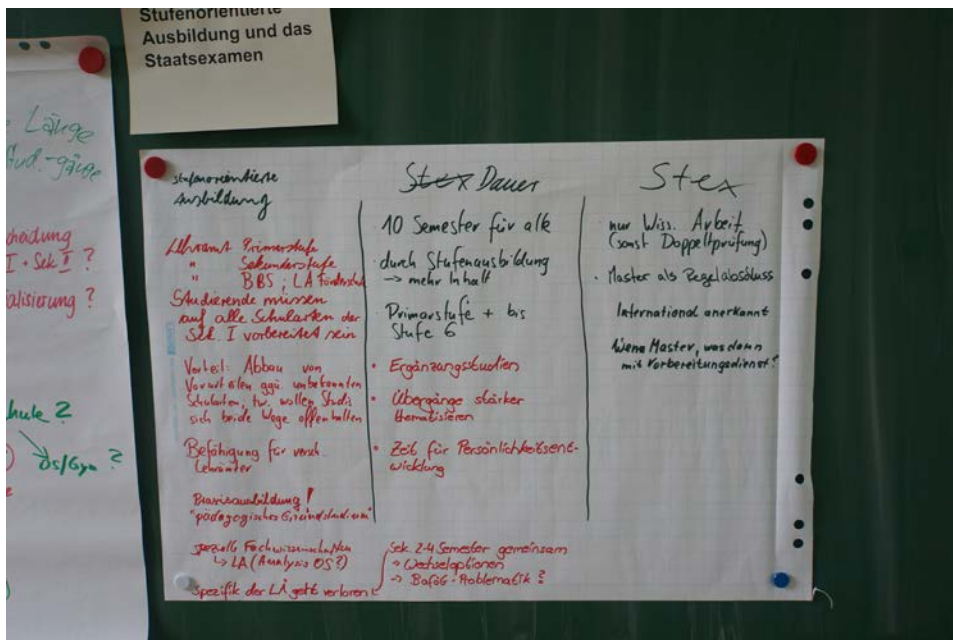 Stufenorientierte
Ausbildung und das
Staatsexamen
Länge
Stud.-gänge
cheidung
I + Sek II ?
ialisierung ?
hule ?
OS/Gym ?
stufenorientierte
Ausbildung
Lehramt Primarstufe
" Sekundarstufe
" BBS ; LA Förderschul
Studierende müssen
auf alle Schularten der
Sek. I vorbereitet sein
Vorteil: Abbau von
Vorurteilen ggü. unbekannten
Schularten, tw. wollen Studis
sich beide Wege offenhalten
Befähigung für versch.
Lehrämter
Basisausbildung !
"pädagogisches Grundstudium"
spezielle Fachwissenschaften
↳ LA (Analysis OS?)
Spezifik der LÄ geht verloren
Stex Dauer
10 Semester für alle
· durch Stufenausbildung
→ mehr Inhalt
· Primarstufe + bis
Stufe 6
• Ergänzungsstudien
• Übergänge stärker
thematisieren
• Zeit für Persönlichkeitsent-
wicklung
Sek. 2-4 Semester gemeinsam
→ Wechseloptionen
→ Bafög-Problematik ?
Stex
· nur Wiss. Arbeit
(sonst Doppeltprüfung)
· Master als Regelabschluss
International anerkannt
Wenn Master, was dann
mit Vorbereitungsdienst?